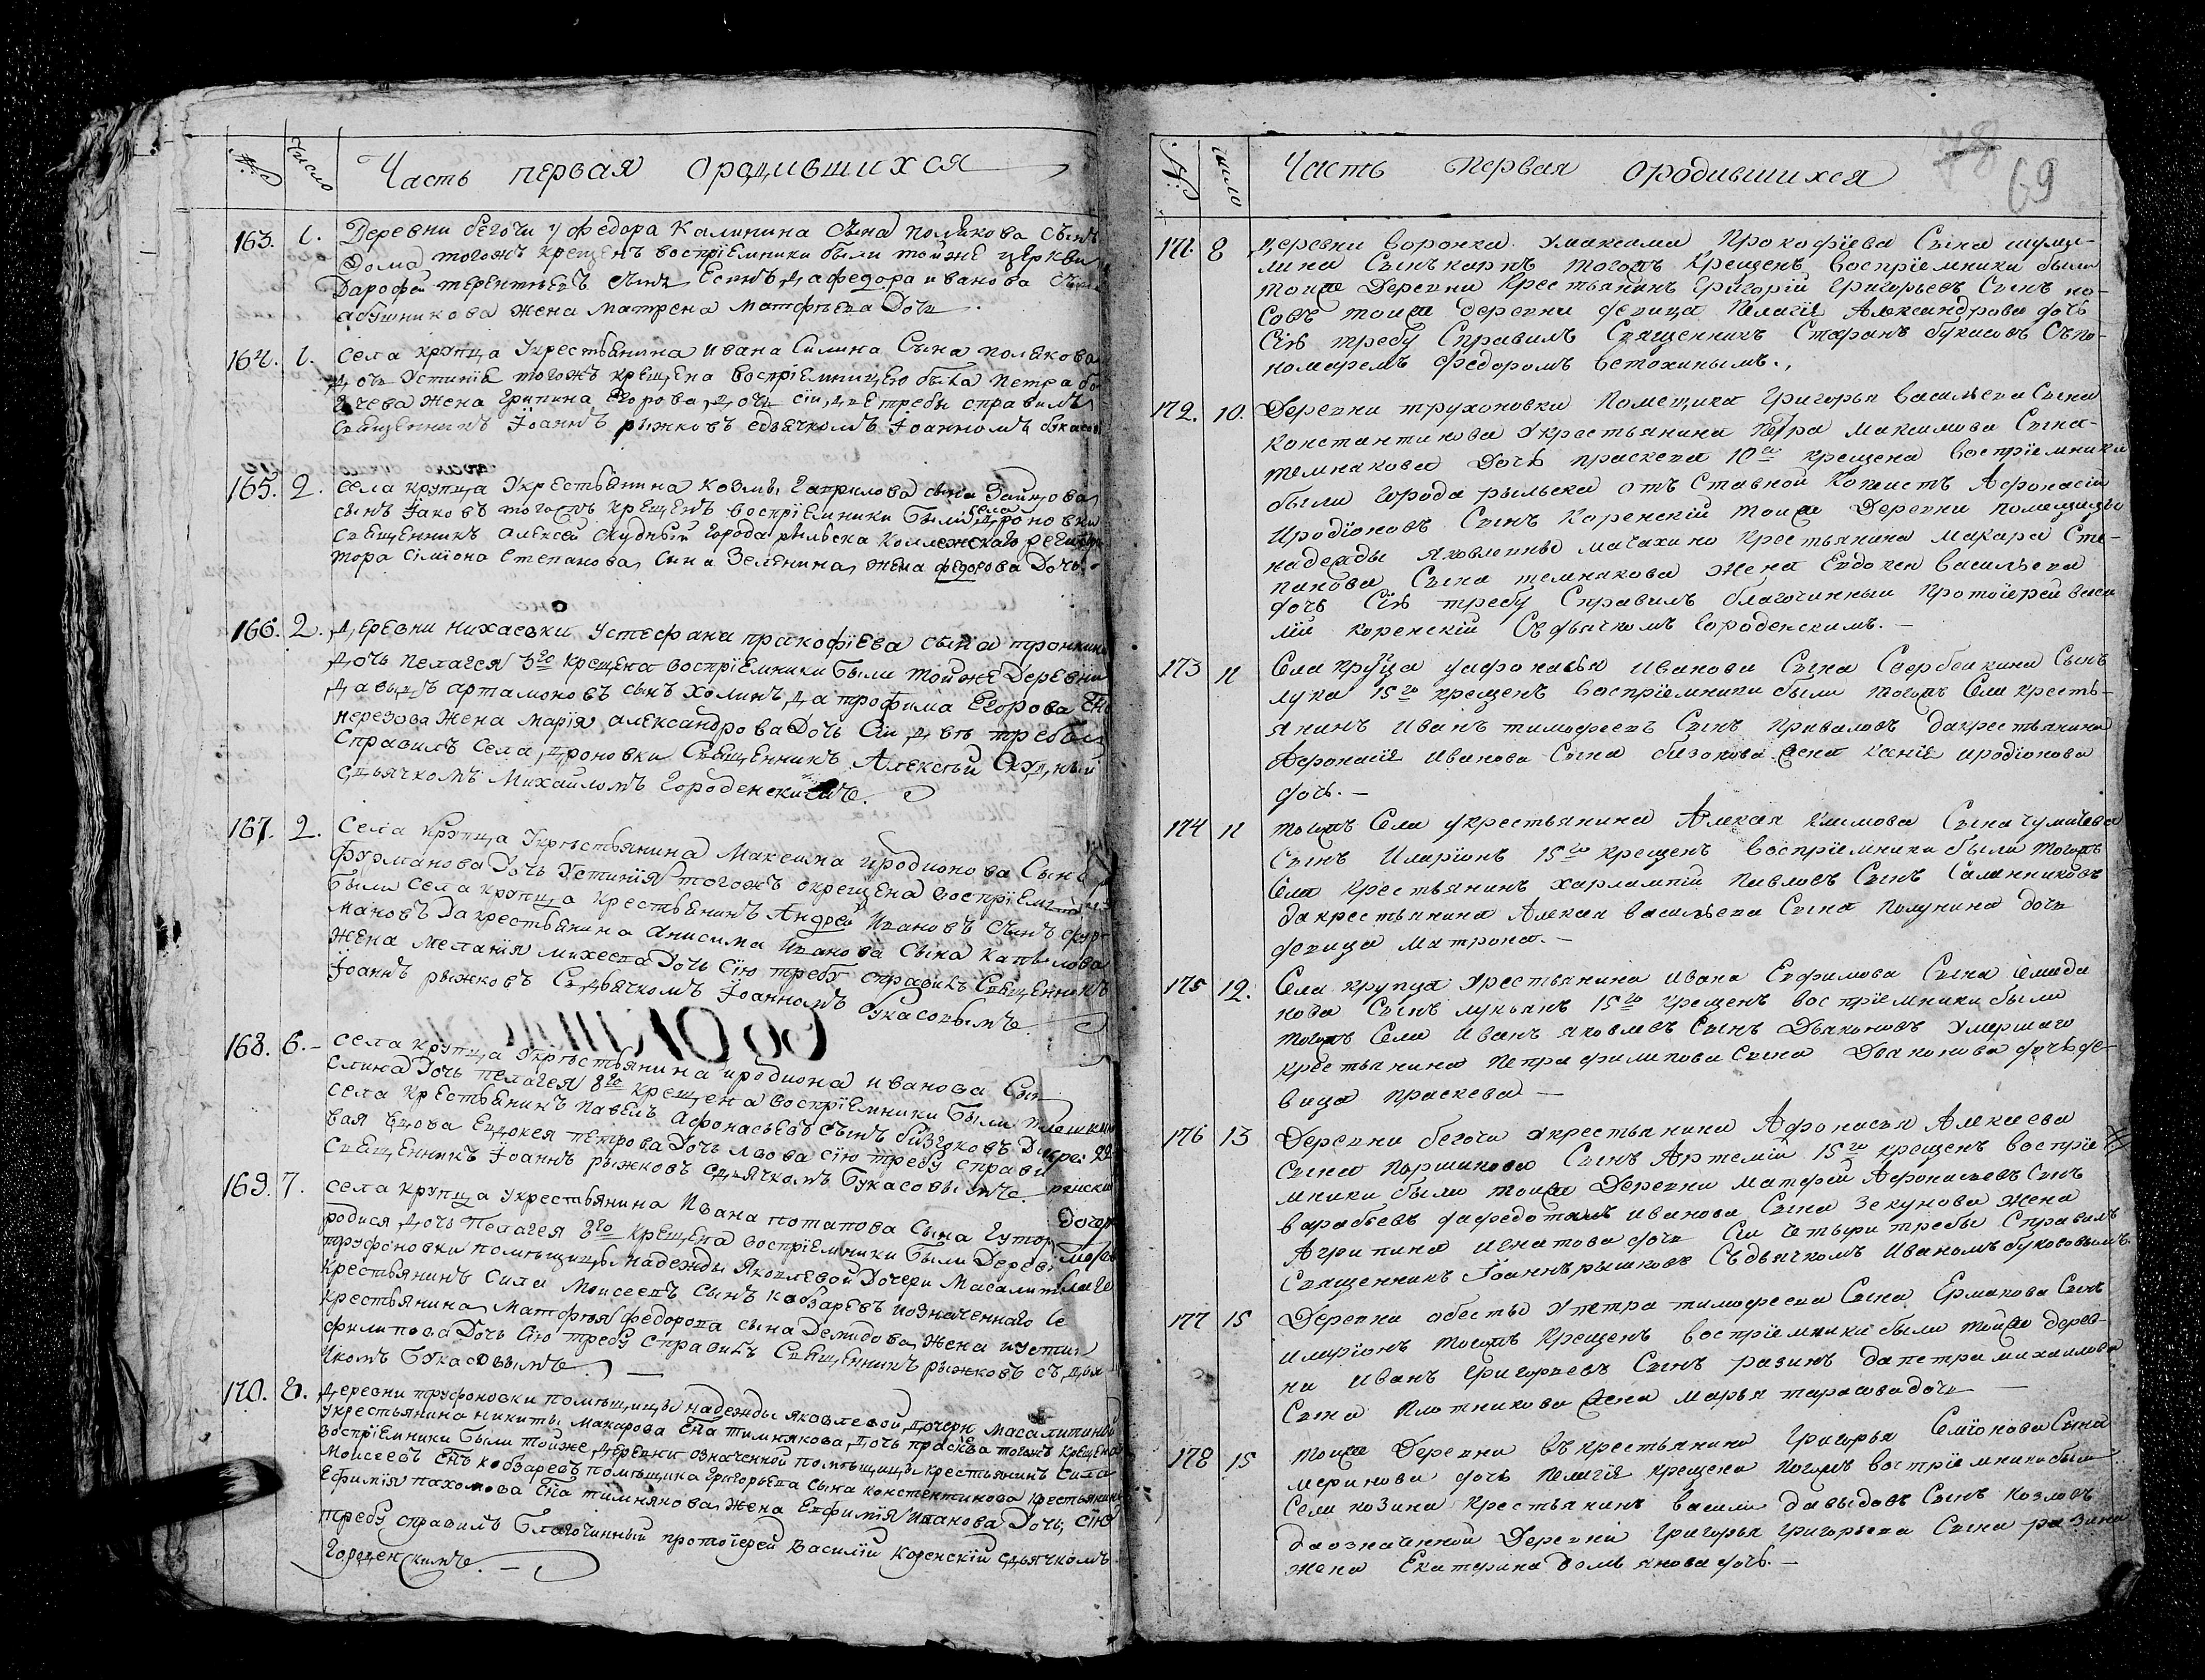 № число Часть первая ородившихся
163. 1. Деревни бегочи у федора Калинина сына полякова сынъ
Дома тогожъ крещенъ воспрїемники были тойже церкви
Дарофей терентьевъ сынъ Есинъ да федора иванова
абушникова жена матрена матфеева дочь
164. 1. села крупца укрестьянина ивана Силина сына полякова
дочь устинїя тогожъ крещена воспрїемницею была петра
жена грипина Егорова дочь сїи две требы справилъ
священникъ Їоаннъ рыжковъ сдьячкомъ Їоанномъ букасов
165. 2. села крупца укрестьянина козмы гаврилова сына Зайцова
сынъ Їаковъ тогожъ крещенъ воспрїемники были села дроновки
священникъ алексей скудный города рыльска коллежскаго регистра
тора сімїона степанова сына Зеленина жена федорова дочь
166. 2. деревни михаевки устефана пракофїева сына
дочь пелагея 3го крещена воспрїемники были тойже деревни
давыдъ артамоновъ сынъ холинъ да трофима Егорова сна
жена марїя александрова дочь сїи две требы
справилъ села дроновки священникъ Алексѣй скудный
сдьячкомъ михаиломъ городенскимъ.
167. 2. села крупца укрестьянина максима иродионова сына
фурманова дочь устинїя тогожъ окрещена воспрїемники
были села крупца крестьянинъ Андрей ивановъ сынъ фур
мановъ дакрестьянина анисима иванова сына капылова
жена меланїя михеева дочь сїю требу справилъ священникъ
Їоаннъ рыжковъ сдьячкомъ Їоанномъ букасовымъ.
168. 6. села крупца укрестьянина иродиона иванова сы
слина дочь пелагея 8го крещена воспрїемники были
села крестьянинъ павелъ афонасьевъ сынъ бизюковъ
вая вдова Евдокея петрова дочь львова сїю требу справи
священникъ Їоаннъ рыжковъ сдьячкомъ букасовымъ
169. 7. села крупца укрестьянина ивана потапова сына
родися дочь пелагея 8го крещена воспрїемники были дерев
труфоновки помѣщицы надежды яковлевой дочери масалити
крестьянинъ сила моисеевъ сынъ кобзаревъ иозначеннаго се
крестьянина матфѣя федорова сына демидова жена иустин
филипова дочь сїю требу справилъ священникъ рыжковъ съ дья
чкомъ букасовымъ.
170. 8. деревни труфоновки помѣщицы надежды яковлевой дочери масалитиной
укрестьянина никиты макарова сна тимнякова дочь праскева тогожъ крещена
воспрїемники были тойже деревни означенной помѣщицы крестьянинъ сила
моисеевъ снъ кобзаревъ помѣщика григорьева сына констентинова крестьянина
Ефимїя пахомова сна тимнякова жена Евфимїя иванова дочь, сїю
требу справилъ благочинный протоїерей василїй коренскїй сдьячкомъ
городенскимъ. —
№ число Часть первая ородившихся 78 69
171. 8 деревни воронка умаксима Прокофїева Сына шуми-
лина Сынъ карпъ тогожъ крещенъ воспрїемники были
тойже деревни крестьянинъ Григорїй Григорьевъ Сынъ но-
совъ тойже деревни девица Пелагїя Александрова дочь
Сїю требу Справилъ Священникъ Стефанъ букасовъ Съпо-
номаремъ Федоромъ ветохинымъ.,
172. 10. Деревни трухоновки Помещика Григорья васильева Сына
константинова укрестьянина Петра максимова Сына-
темнакова дочь праскева 10го крещена воспрїемники
были города рыльска отъ ставной Копиистъ Афонасїй
Иродїоновъ Сынъ Коренскїй тойже деревни помещицы
надежды яковлевны масахино крестьянина макара Сте-
панова Сына темнякова жена Евдокея васильева
дочь Сїю требу Справилъ благочинный Протоїерей васи
лїй коренскїй Съдьячкомъ городенскимъ. —
173 11 Села Крупца уафонасья Иванова Сына Свербеикина Сынъ
лука 15го крещенъ воспрїемники были тогожъ Села кресть-
янинъ Иванъ тимофеевъ Сынъ Приваловъ дакрестьянина
Афонасїя Иванова Сына бизюкова жена ксенїя иродїонова
дочь. —
174 11 тогожъ Села укрестьянина Алексея климова Сына чумичева
Сынъ Иларїонъ 15го крещенъ воспрїемники были тогожъ
Села крестьянинъ харлампїй Павловъ Сынъ Саленниковъ
дакрестьянина Алексея васильева Сына Полунина дочь
девица матрона. —
175 12. Села крупца укрестьянина Ивана Евфимова Сына
нова Сынъ лукьянъ 15го крещенъ воспрїемники были
тогожъ Села Иванъ яковлевъ Сынъ Дьяконовъ умершаго
крестьянина Петра филипова Сына Дьяконова дочь де-
вица праскева —
176 13 Деревни бегочи укрестьянина Афонасья Алексеева
Сына Паршикова Сынъ Артемїй 15го крещенъ воспрїе
мники были тойже деревни матфей Афонасьевъ Сынъ
варабьевъ дафедота Иванова Сына Зекунова жена
Агрипина Игнатова дочь Сїи четыри требы Справилъ
Священникъ Їоаннъ рышковъ Съдьячкомъ Иваномъ букосовымъ
177 15 Деревни обесты упетра тимофеева Сына Ермакова Сынъ
иларїонъ тогожъ крещенъ воспрїемники были тойже дерев-
ни Иванъ Григорьевъ Сынъ разинъ дапетра михаилова
Сына Плотникова жена марья тарасова дочь —
178 15 тойже деревни укрестьянина Григорья Семїонова Сына
меринова дочь пелагїя крещена тогожъ воспрїемники были
Села козина крестьянинъ васили давыдовъ Сынъ козловъ
даозначенной деревни Григорья Григорьева Сына разина
жена Екатерина домьянова дочь. —